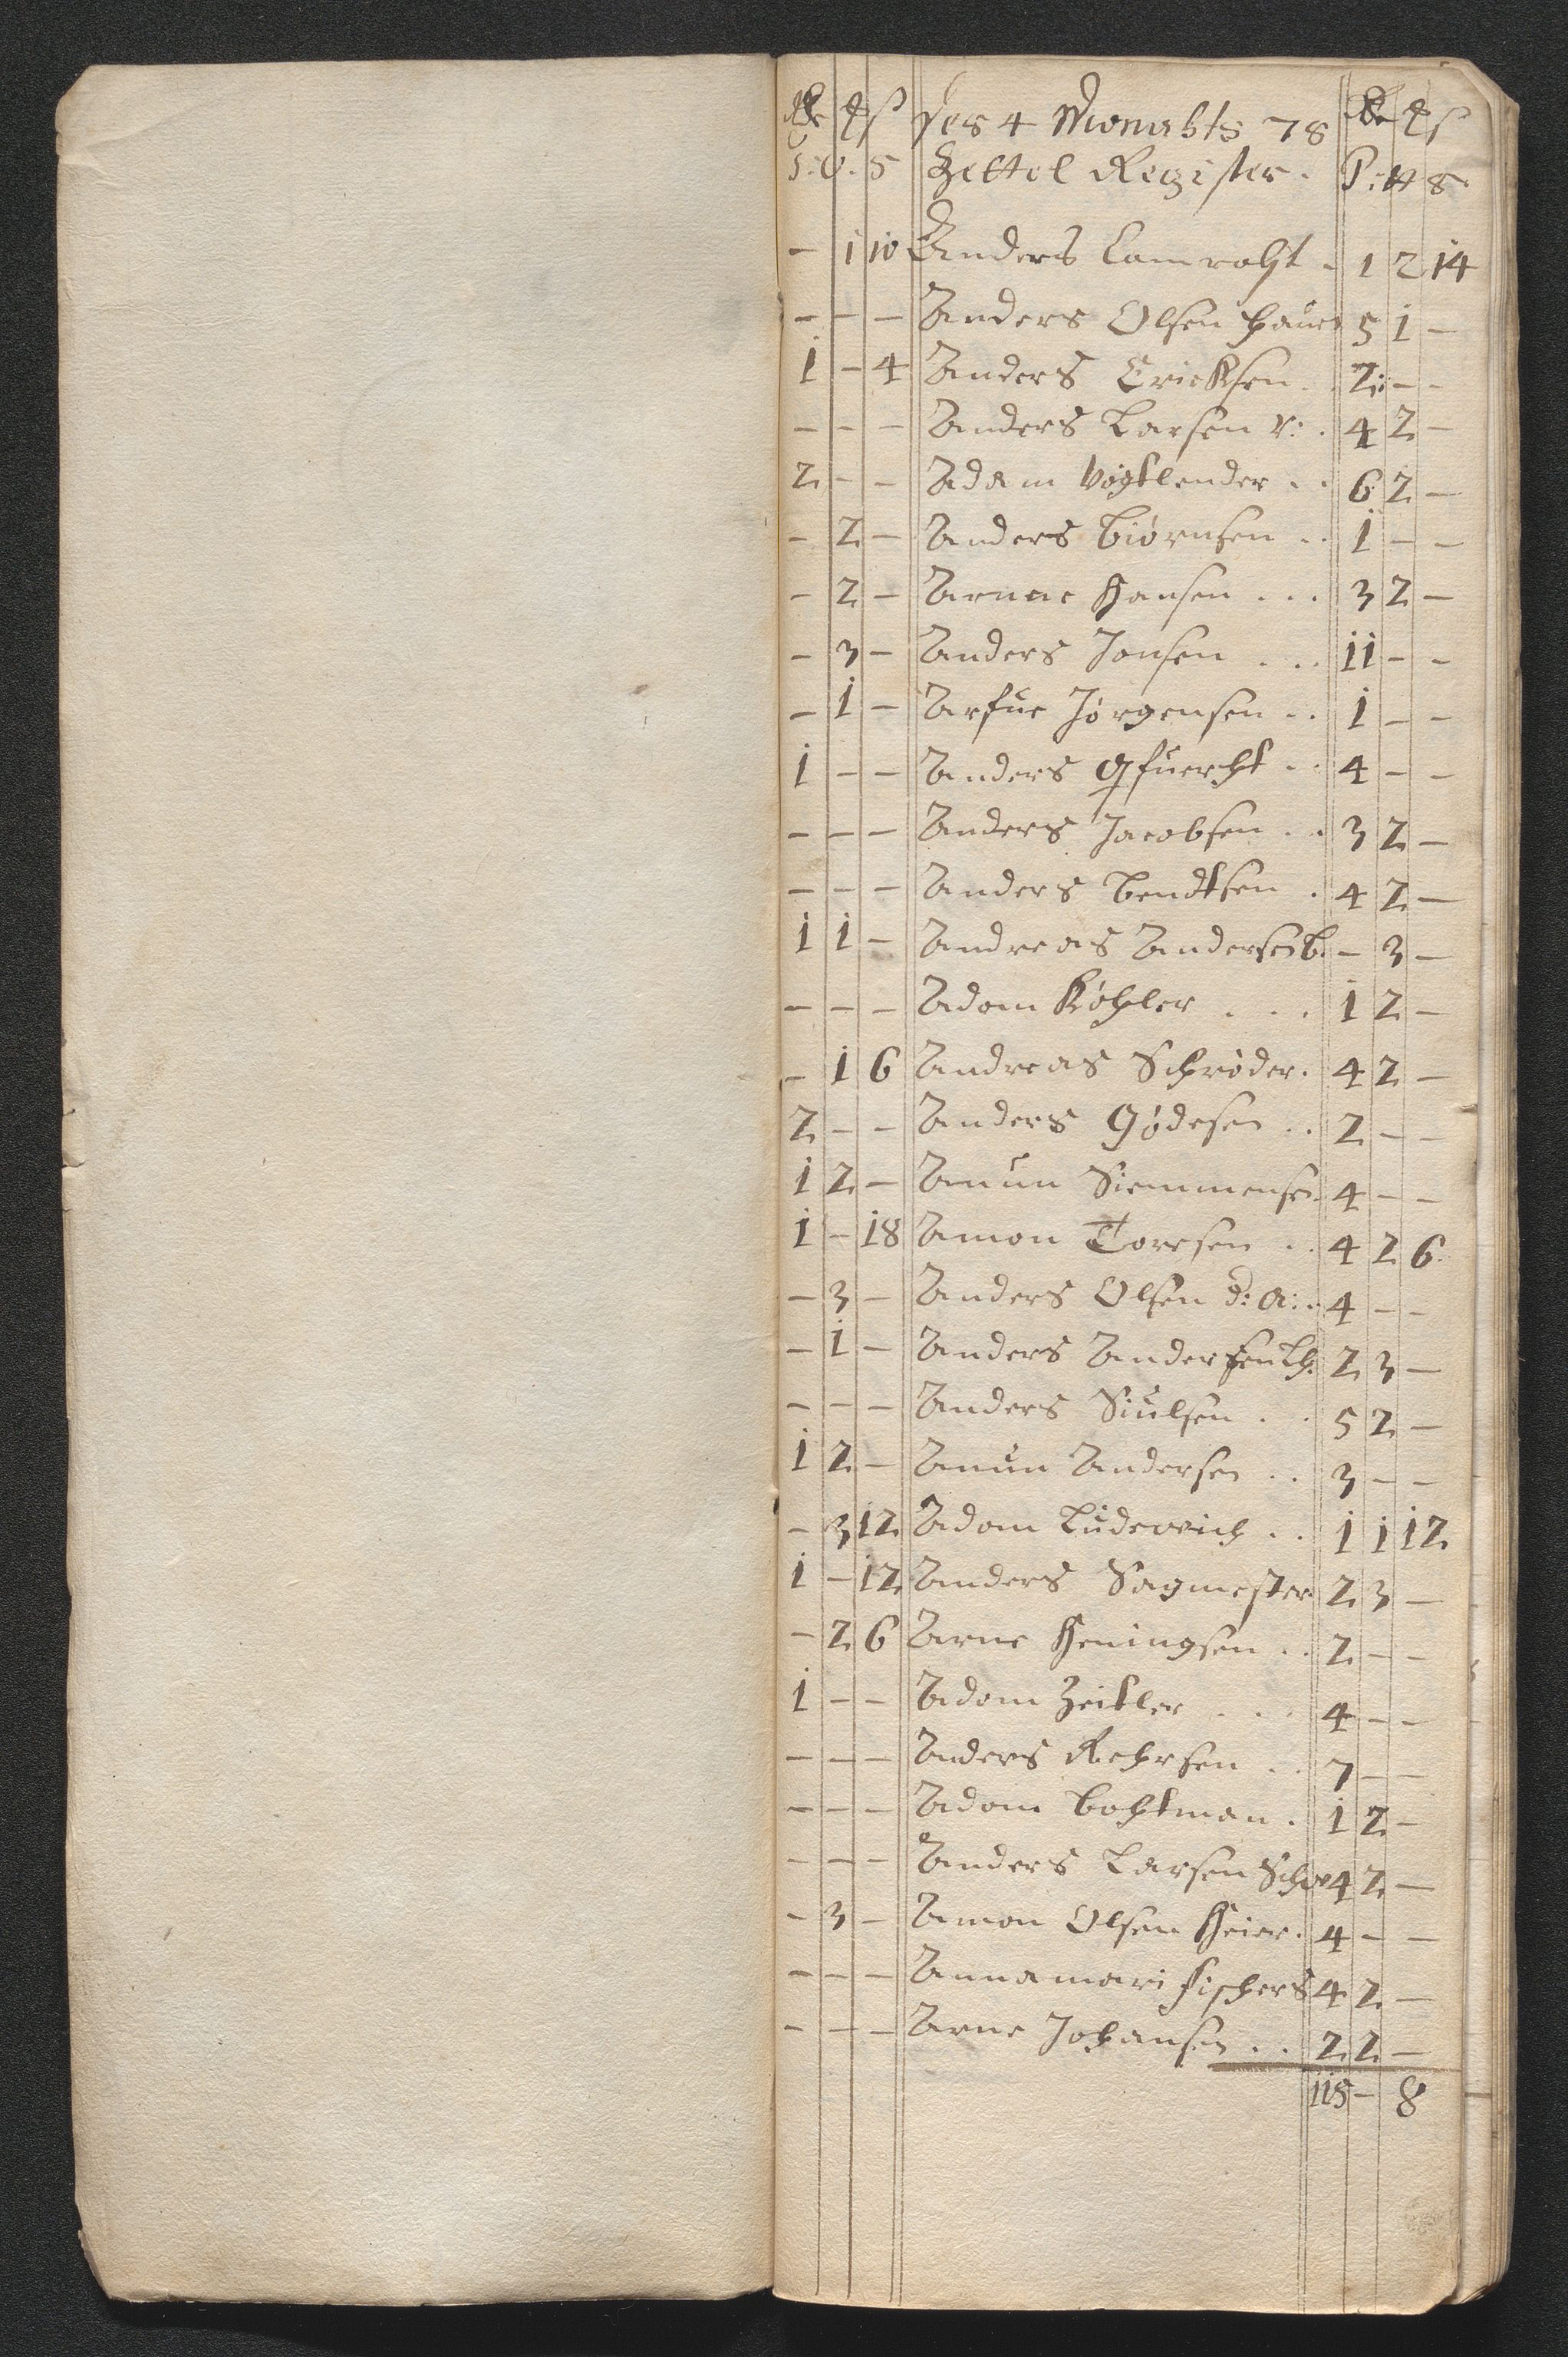 des 4 Monahts 78
Zettel Register.
- 1 10 Anders Camroht . 1 2 14
- - - Anders Olsen hauer 5 1 -
1 - 4 Anders Ericksen . 2 - -
- - - Anders Larsen v: . 4 2 -
2 - - Adam Vogtlender . . 6 2 -
- 2 - Anders Biörnsen . . 1 - -
- 2 - Arnne Hansen . . . 3 2 -
- 3 - Anders Jonsen . . . 11 - -
- 1 - Arfue Jörgensen . . 1 - -
1 - - Anders . . 4 - -
- - - Anders Jacobsen . . 3 2 -
- - - Anders Bendtsen . 4 2 -
1 1 - Andreas Andersen b. - 3 -
- - - Adam Köhler . . . 1 2 -
- 1 6 Andreas Schröder . 4 2 -
2 - - Anders Gödesen . . 2 - -
1 2 - Anun Siemmensen . 4 - -
1 - 18 Amon Toresen . . 4 2 6.
- 3 - Anders Olsen d: A: . 4 - -
- 1 - Anders Andersen Lh. 2 3 -
- - - Anders Siulsen . . 5 2 -
1 2 - Anun Andersen . . 3 - -
- 3 12 Adam Ludewich . . 1 1 12
1 - 12 Anders Sagmester 2 3 -
- 2 6 Arne Heningsen . . 2 - -
1 - - Adam Zeitler . . . 4 - -
- - - Anders Rehrsen . . 7 - -
- - - Adam Bohtman . 1 2 -
- - - Anders Larsen Schr 4 2 -
- 3 - Amon Olsen Heier . 4 - -
- - - Annamari Fischers 4 2 -
- - - Arne Johansen . . 2 2 -
115 - 8